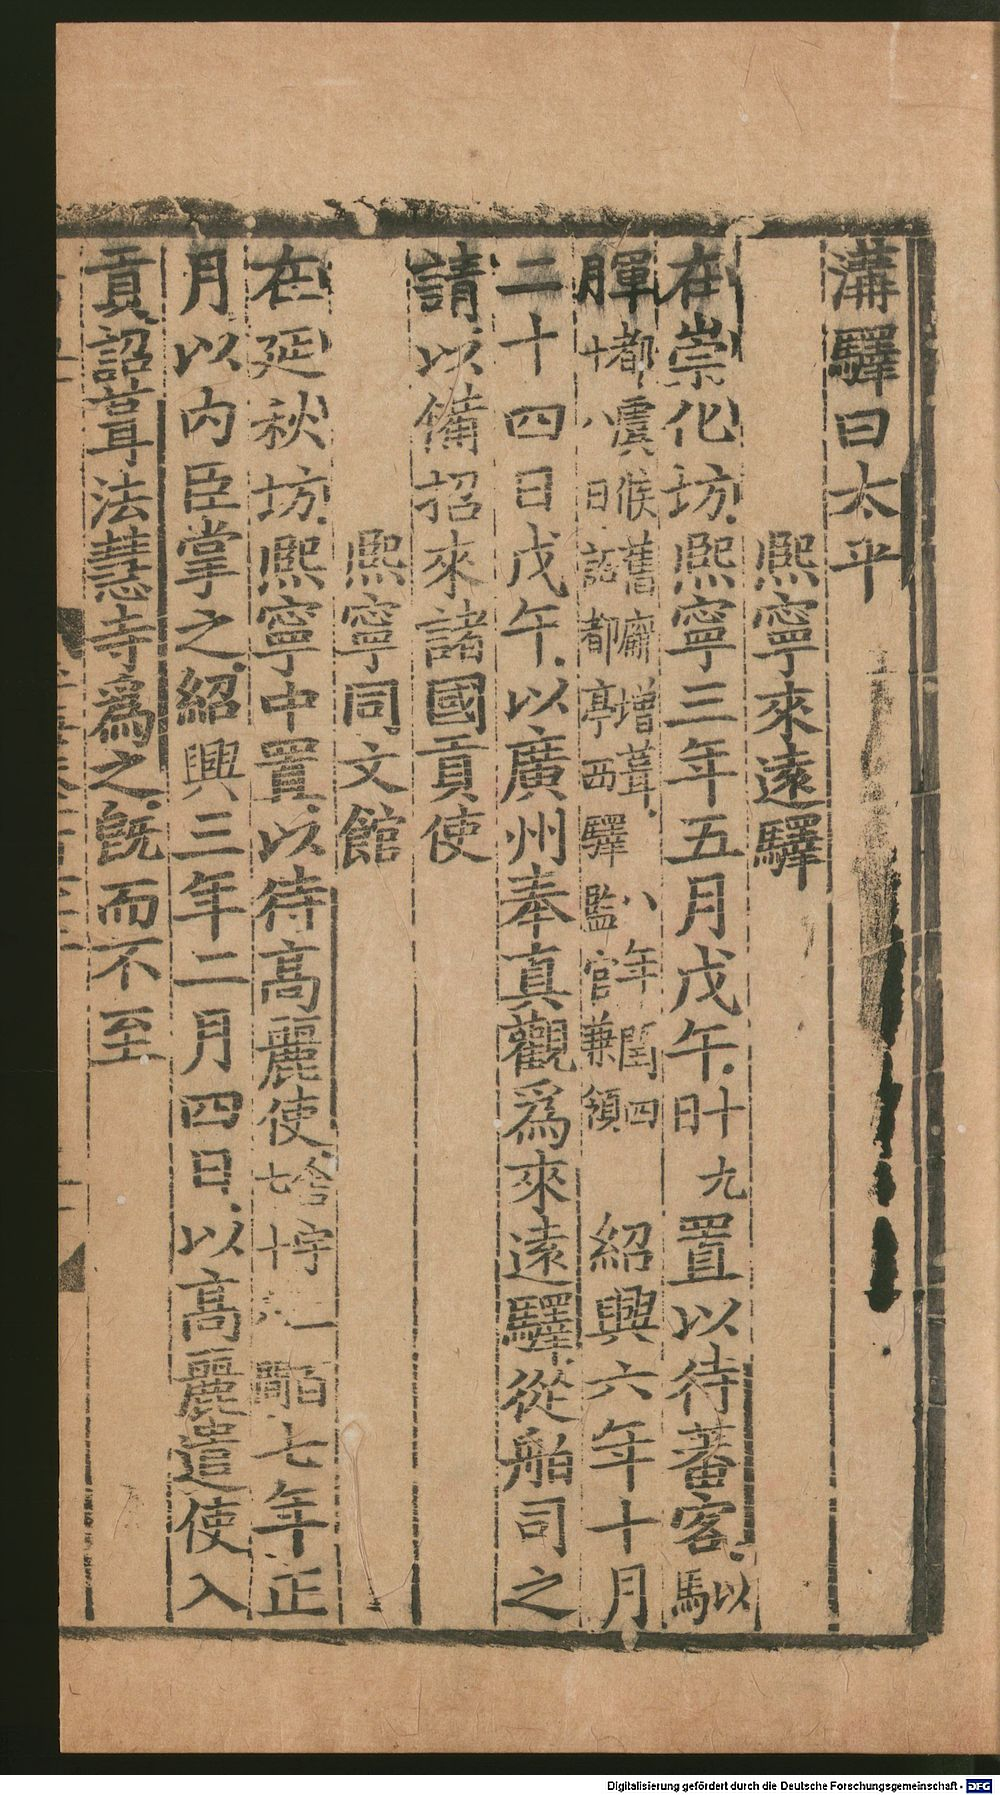 溝驛曰太平
熙寧來遠驛
在崇化坊熙寧三年五月戊午十九日置以待蕃客以馬
軍都虞候舊廨增葺八年閏四
月十八日詔都亭西驛監官兼領 紹興六年十月
二十四日戊午以廣州奉真觀爲來遠驛從舶司之
請以備招來諸國貢使
熙寧同文館
在延秋坊熙寧中置以待高麗使舍宇一百
七十八間七年正
月以内臣掌之紹興三年二月四日以高麗遣使入
貢詔葺法慧寺爲之旣而不至
Digitalisierung gefördert durch die Deutsche Forschungsgemeinschaft - DFG